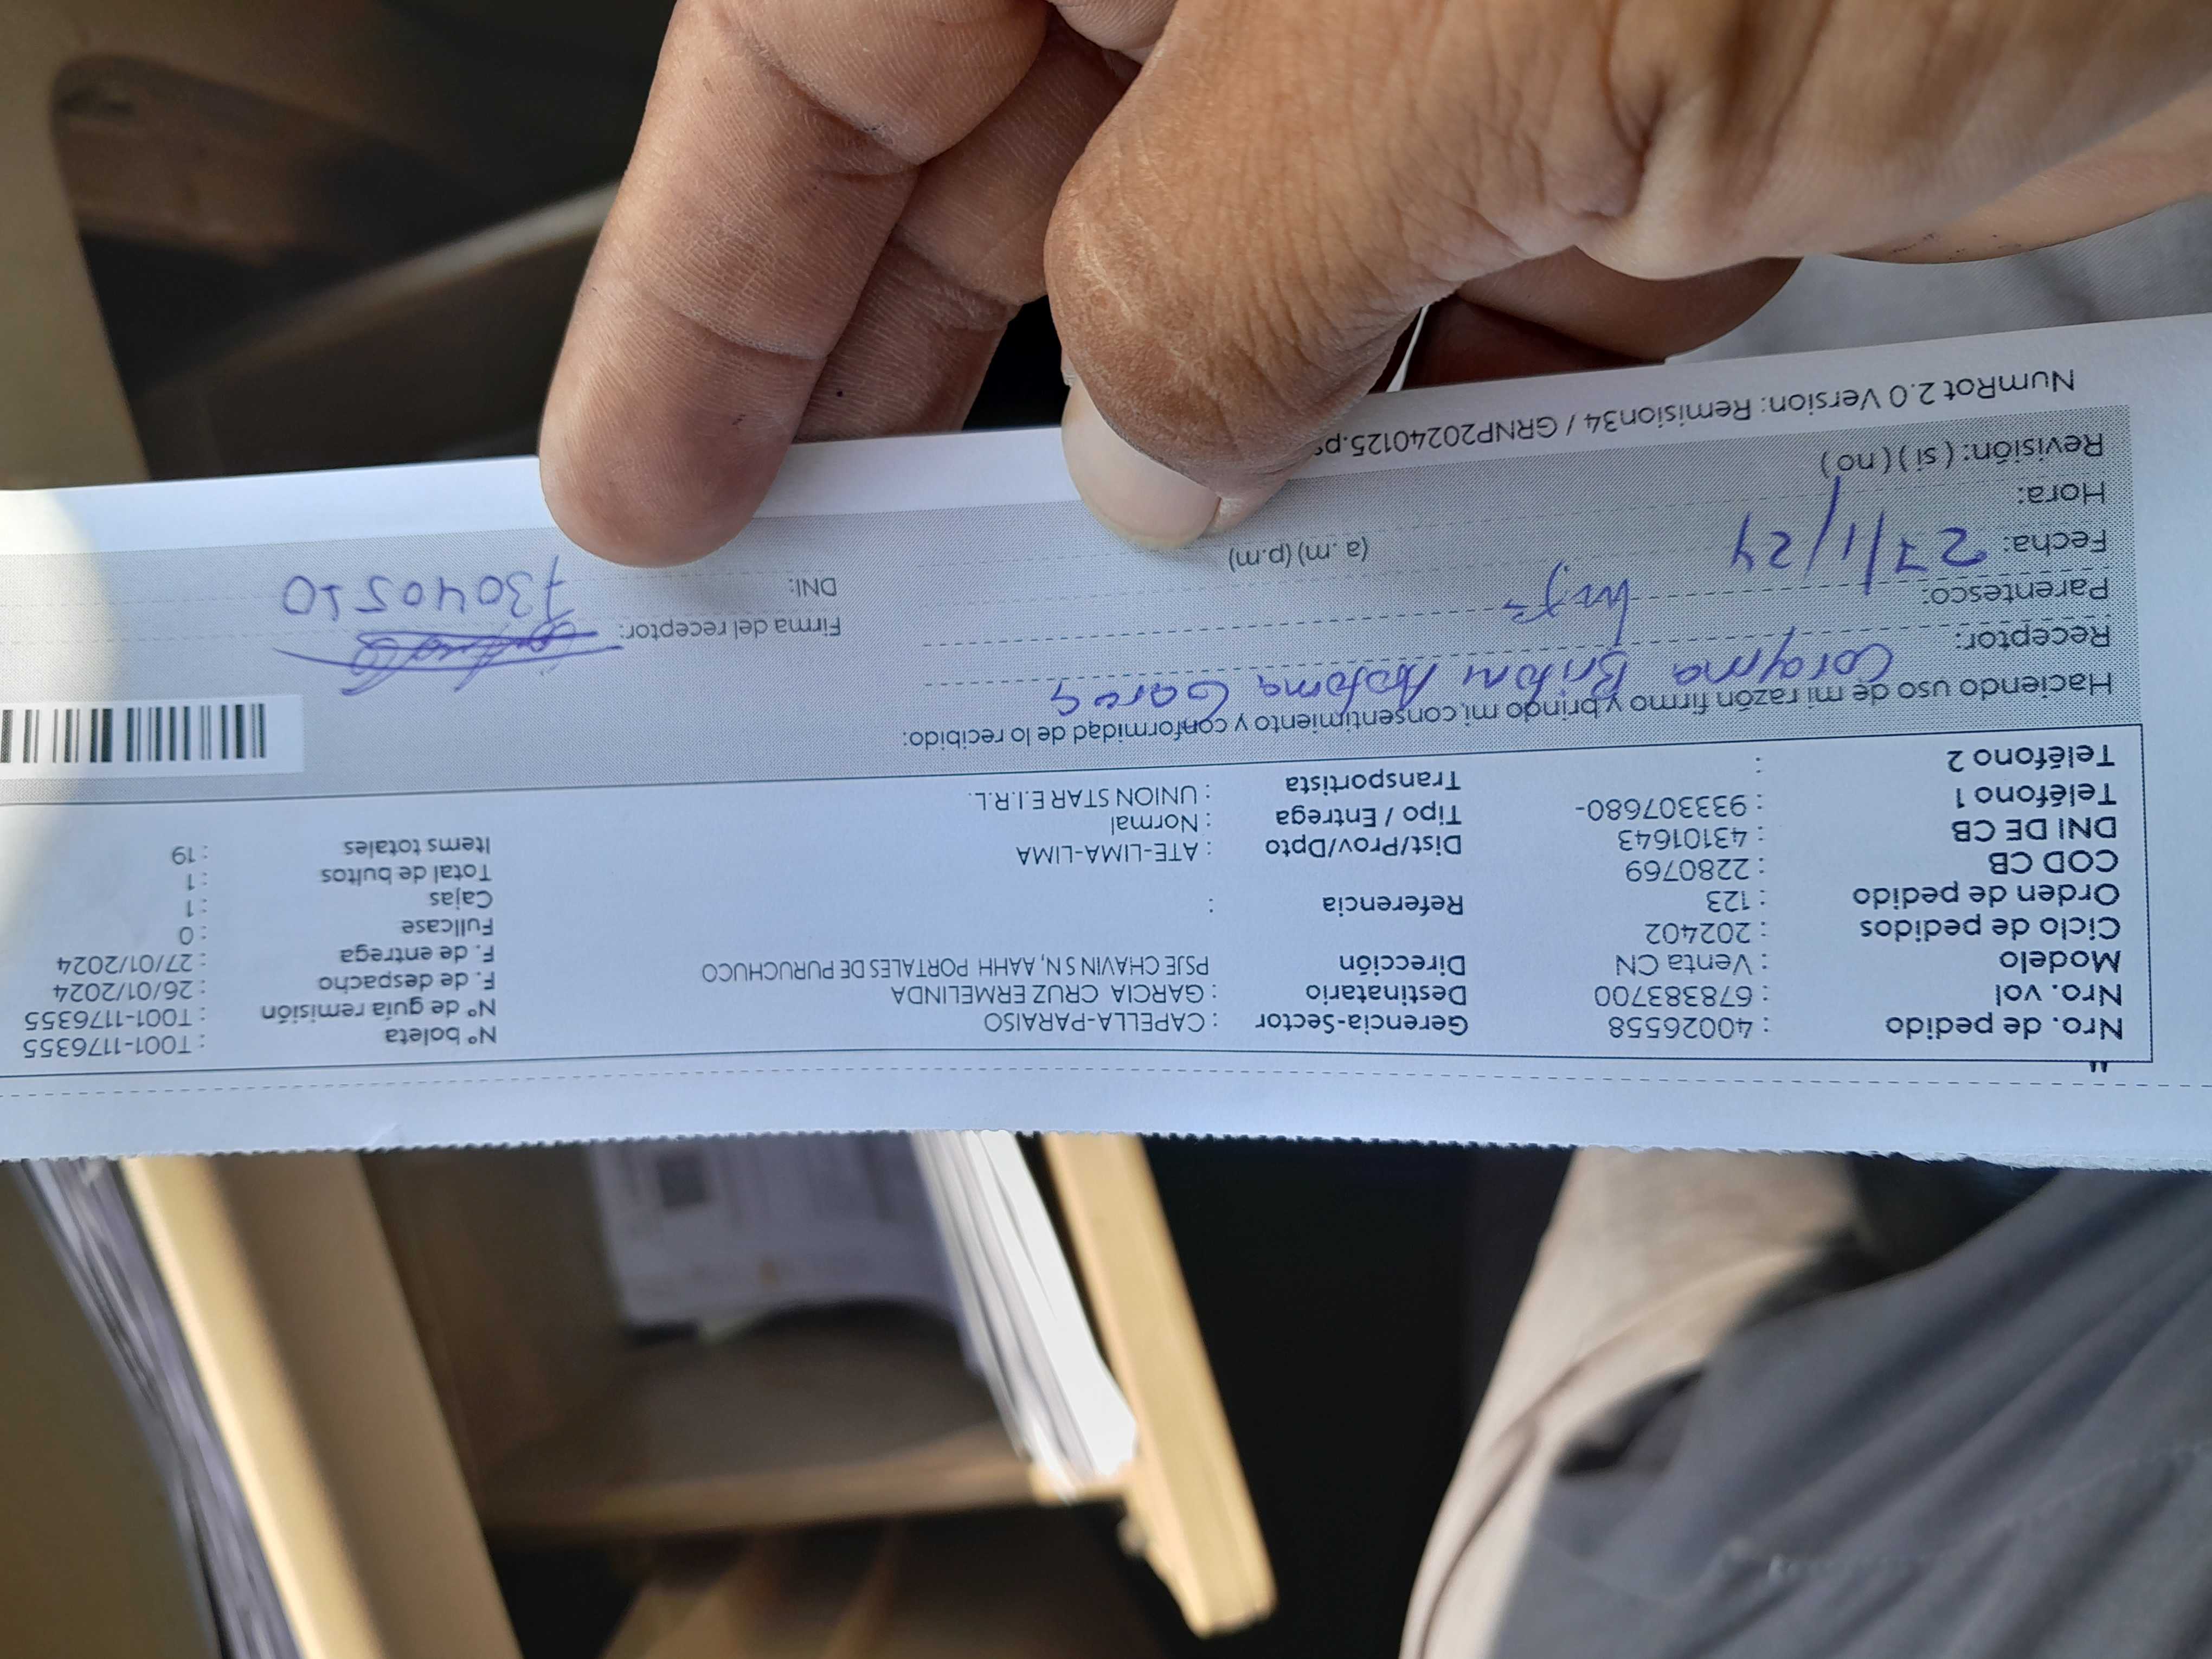 Nro. de pedido : 40026558 Gerencia-Sector : CAPELLA-PARAISO Nº boleta : T001-1176355
Nro. vol : 678383700 Destinatario : GARCIA CRUZ ERMELINDA Nº de guía remisión : T001-1176355
Modelo : Venta CN Dirección PSJE CHAVIN S N, AAHH PORTALES DE PURUCHUCO F. de despacho : 26/01/2024
Ciclo de pedidos : 202402 F. de entrega : 27/01/2024
Orden de pedido : 123 Referencia : Fullcase : 0
COD CB : 2280769 Cajas : 1
DNI DE CB : 43101643 Dist/Prov/Dpto : ATE-LIMA-LIMA Total de bultos : 1
Teléfono 1 : 933307680- Tipo / Entrega : Normal Items totales : 19
Teléfono 2 : Transportista : UNION STAR E.I.R.L.
Haciendo uso de mi razón firmo y bringo mi consentimiento y conformidad de lo recibido:
Receptor: Firma del receptor:
Parentesco: DNI: 73040510
Fecha: 27/1/24
Hora: (a.m) (p.m)
Revisión: ( si ) ( no )
NumRot 2.0 Version: Remision34 / GRNP20240125.p